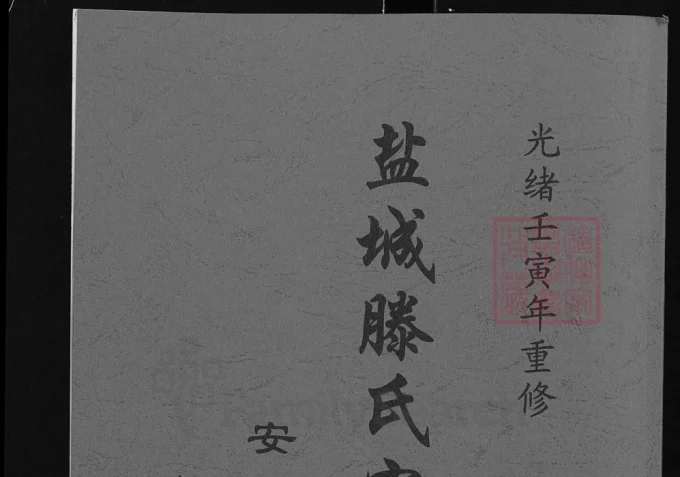 光绪壬寅年重修
盐城滕氏
安